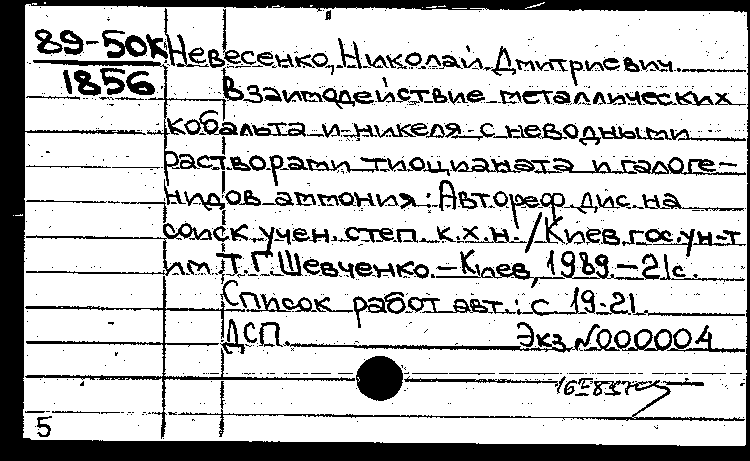 89-50К Невесенко, Николай Дмитриевич.
1856
Взаимодействие металлических
кобальта и никеля с неводными
растворами тиоцианата и галоге-
нидов аммония: Автореф. дис. на
соиск. учен. степ. к.х.н. / Киев. гос. ун-т
им. Т.Г. Шевченко. – Киев, 1989. – 21с.
Список работ авт.: с 19-21.
ДСП. Экз №000004
5